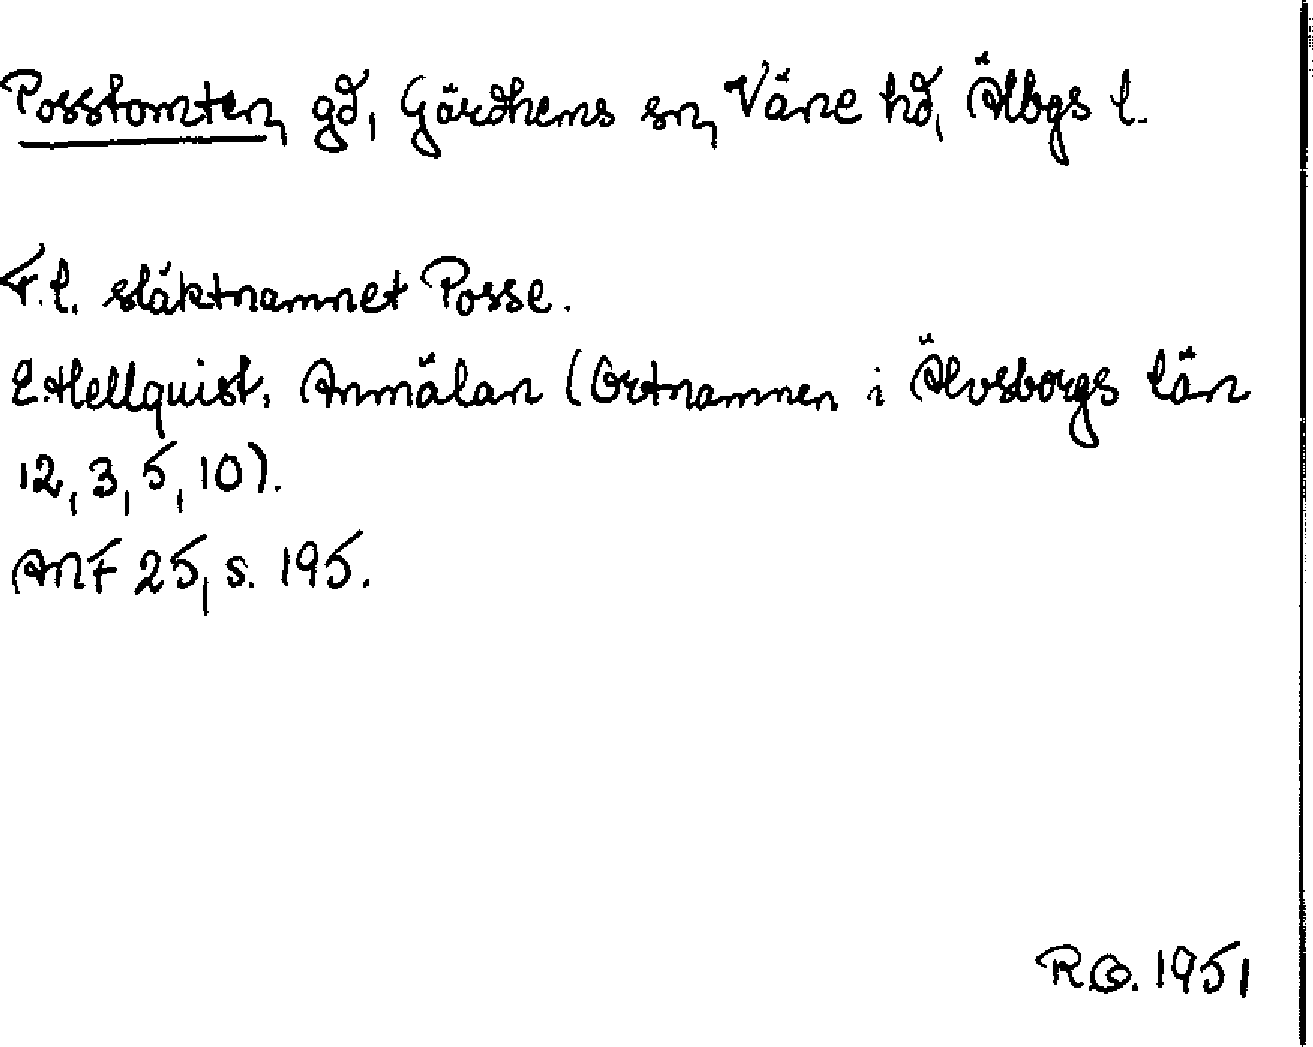 Posstomten, gd, Gärdhems sn, Väne hd, Älbgs l.
F.l. släktnamnet Posse.
E. Hellquist, Anmälan (Ortnamnen i Älvsborgs län
12, 3, 5, 10).
ANF 25, s. 195.
R.O. 1951